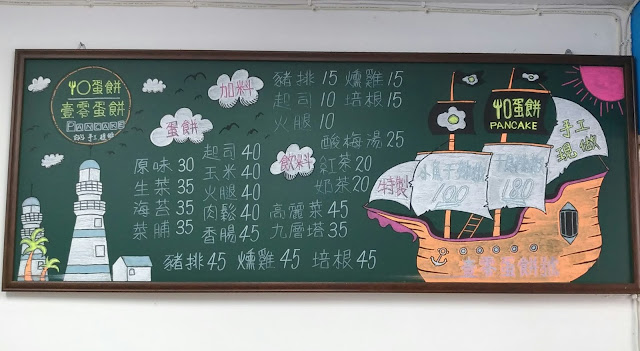 蛋餅
壹零蛋餅
PANCAKE
加料
豬排 15 燻雞 15
起司 10 培根 15
火腿 10
蛋餅
原味 30
生菜 35
海苔 35
菜脯 35
起司 40
玉米 40
火腿 40
肉鬆 40
香腸 45
飲料
酸梅湯 25
紅茶 20
奶茶 20
高麗菜 45
九層塔 35
豬排 45 燻雞 45 培根 45
蛋餅
PANCAKE
手工
現做
特製
100
180
壹零蛋餅號